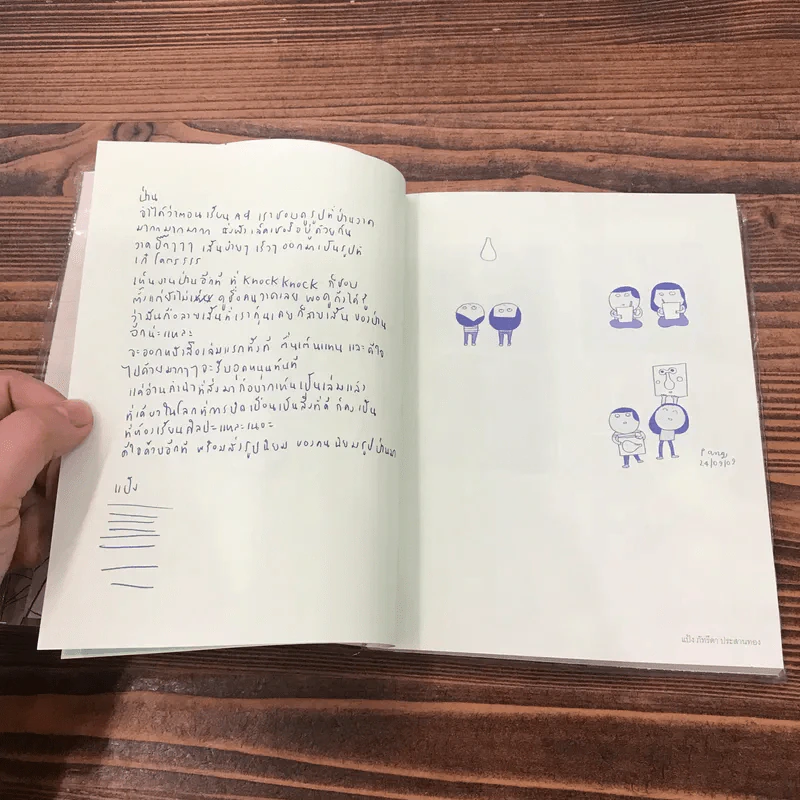 ป่าน
จำได้ว่าตอนเรียน A4 เราชอบดูรูปที่ป่านวาด
มากกมากมากก
วาดปึ๊กๆๆๆ เส้นง่ายๆ เร็วๆ ออกมาเป็นรูปที่
เก๋
เห็นงานป่านอีกที ที่ KNOCK KNOCK ก็ชอบ
ตั้งแต่ยังไม่ ดูชื่อคนวาดเลย พอดูถึงได้รู้
ว่าเส้นคือลายเส้นที่เราคุ้นเคย ก็ลายเส้น ของป่าน
อีกน่ะแหละ
จะออกหนังสือเล่มแรกทั้งที ตื่นเต้นแทน และดีใจ
ไปด้วยมากๆๆ จะรีบอุดหนุนทันที
แค่อ่านคำนำที่ส่งมาก็อยากเห็นเป็นเล่มแล้ว
ที่เดียวในโลกที่การบิดเบือนเป็นสิ่งที่ดี ก็คงเป็น
ที่ห้องเรียนศิลปะแหละเนอะ
ดีใจด้วยอีกที พร้อมส่งรูปนิยม ของคนนิยมรูปป่านมา
แป้ง
Pang,
แป้ง ภัทรีดา ประสานทอง